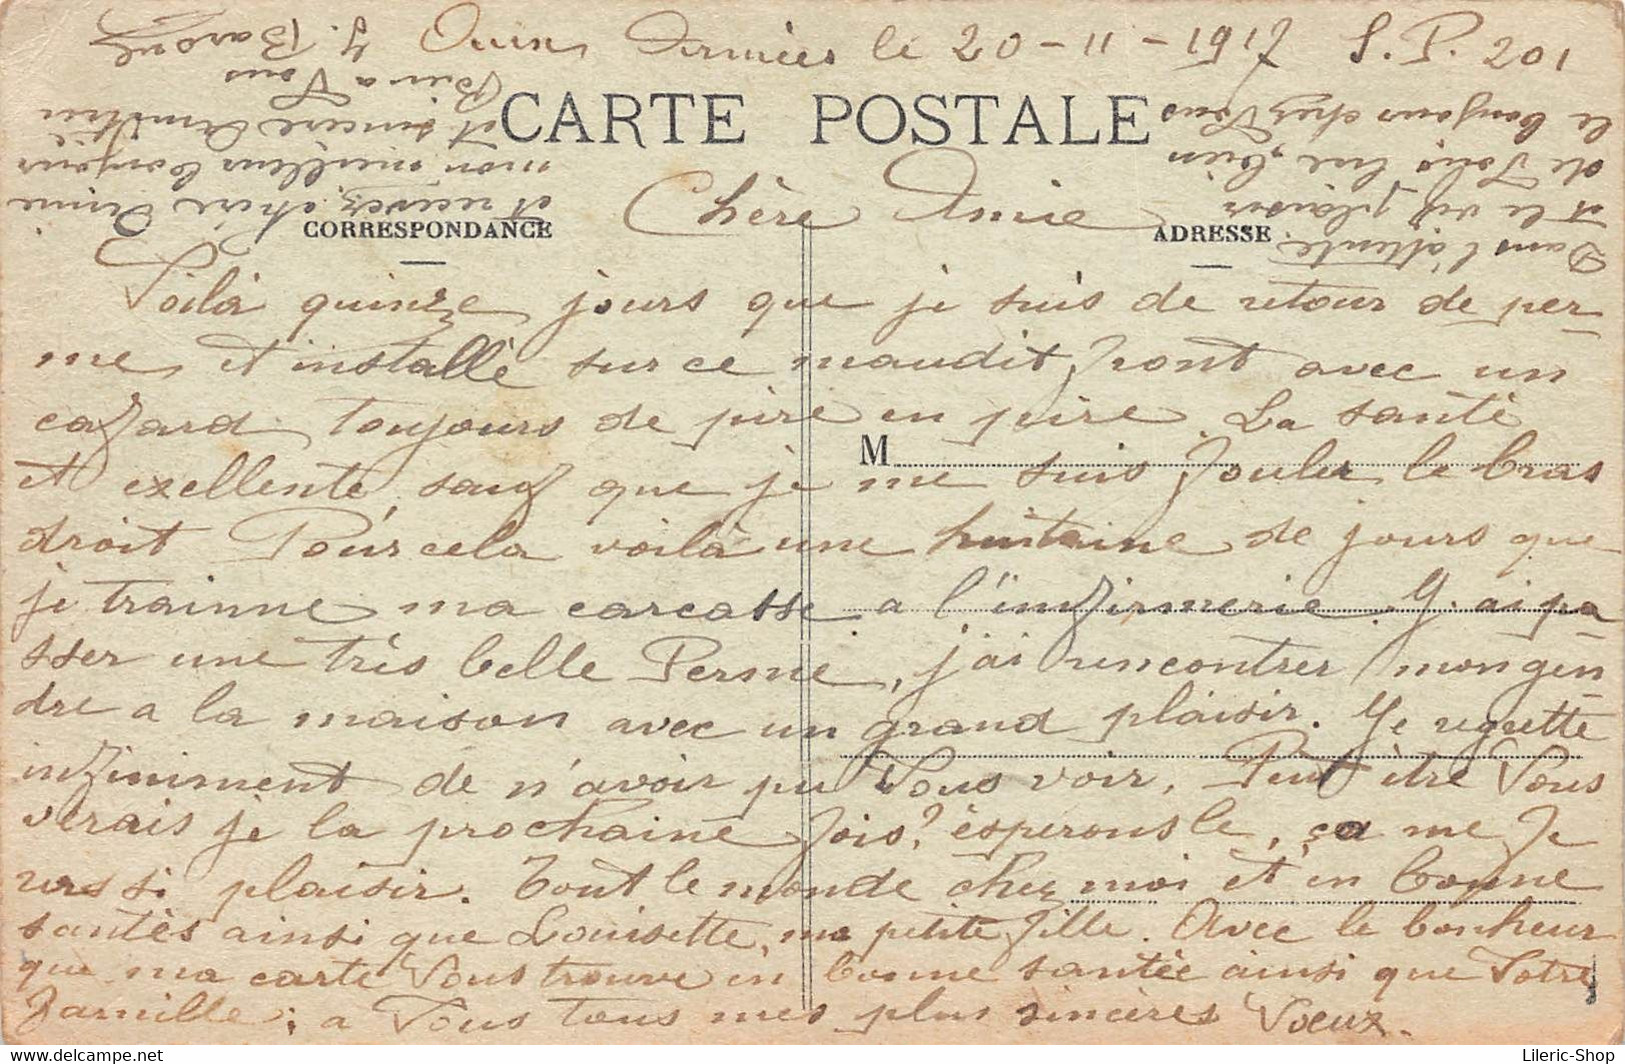 Aux Armées le 20-11-1917 S.P. 201
CARTE POSTALE
Chère Amie
CORRESPONDANCE
ADRESSE
M
Voilà quinze jours que je suis de retour de per-
me, et installé sur ce maudit front avec un
cafard toujours de pire en pire. La santé
et exellente, sauf que je me suis fouler le bras
droit Pour cela voilà une huitaine de jours que
je trainne ma carcasse a l'infirmerie. J'ai pa
sser une très belle Perme, j'ai rencontrer mon gen-
dre a la maison avec un grand plaisir. Je regrette
infiniment de n'avoir pu Vous voir, Peut être Vous
verais je la prochaine fois? ésperons le, ça me fe
ras si plaisir. Tout le monde chez moi et en bonne
santés ainsi que Louisette, ma petite fille. Avec le bonheur
que ma carte Vous trouve en bonne santée ainsi que Votre
famille; a Vous tous mes plus sincères Voeux.
Dans l'attente
et le vif plaisir
de Vous lire, bien
le bonjour chez Vous
et recevez, chère Amie
mon meilleur bonjour
et sincère Amitié
Bien a Vous
J. Baroul
Lileric-Shop
www.delcampe.net